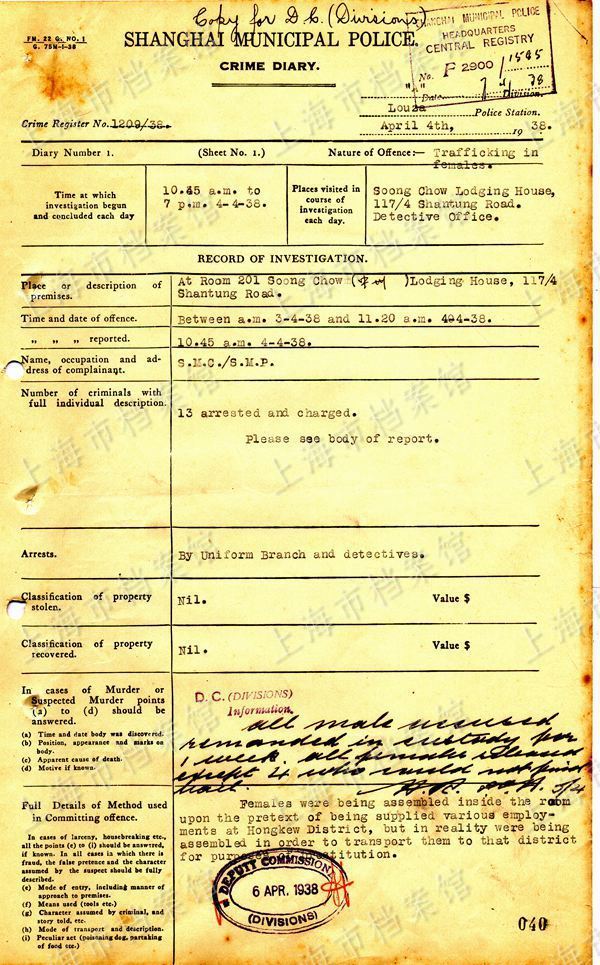 Copy for D.C. (Divisions)
FM. 22 G. NO. 1
G. 75M-1-38
SHANGHAI MUNICIPAL POLICE.
CRIME DIARY.
SHANGHAI MUNICIPAL POLICE
HEADQUARTERS
CENTRAL REGISTRY
No. P 2900/1585
Date 38
Division.
Crime Register No. 1209/38.
Louza Police Station.
April 4th, 19 38.
Diary Number 1. (Sheet No. 1.) Nature of Offence:— Trafficking in
females.
Time at which
investigation begun
and concluded each day
10.45 a.m. to
7 p.m. 4-4-38.
Places visited in
course of
investigation
each day.
Soong Chow Lodging House,
117/4 Shantung Road.
Detective Office.
RECORD OF INVESTIGATION.
Place or description of
premises.
At Room 201 Soong Chow ( )Lodging House, 117/4
Shantung Road.
Time and date of offence.
Between a.m. 3-4-38 and 11.20 a.m. 4-4-38.
„ „ „ reported.
10.45 a.m. 4-4-38.
Name, occupation and ad-
dress of complainant.
S.M.C./S.M.P.
Number of criminals with
full individual description.
13 arrested and charged.
Please see body of report.
Arrests.
By Uniform Branch and detectives.
Classification of property
stolen.
Nil. Value $
Classification of property
recovered.
Nil. Value $
In cases of Murder or
Suspected Murder points
(a) to (d) should be
answered.
(a) Time and date body was discovered.
(b) Position, appearance and marks on
body.
(c) Apparent cause of death.
(d) Motive if known.
D. C. (DIVISIONS)
Information.
All male accused
remanded in custody for
1 week. All females released
except 4 who could not find
bail.
5/4
Full Details of Method used
in Committing offence.
In cases of larceny, housebreaking etc.,
all the points (e) to (i) should be answered,
if known. In all cases in which there is
fraud, the false pretence and the character
assumed by the suspect should be fully
described.
(e) Mode of entry, including manner of
approach to premises.
(f) Means used (tools etc.)
(g) Character assumed by criminal, and
story told, etc.
(h) Mode of transport and description.
(i) Peculiar act (poisoning dog, partaking
of food etc.)
Females were being assembled inside the room
upon the pretext of being supplied various employ-
ments at Hongkew District, but in reality were being
assembled in order to transport them to that district
for purposes of prostitution.
DEPUTY COMMISSIONER
6 APR. 1938
(DIVISIONS)
040
上海市档案馆